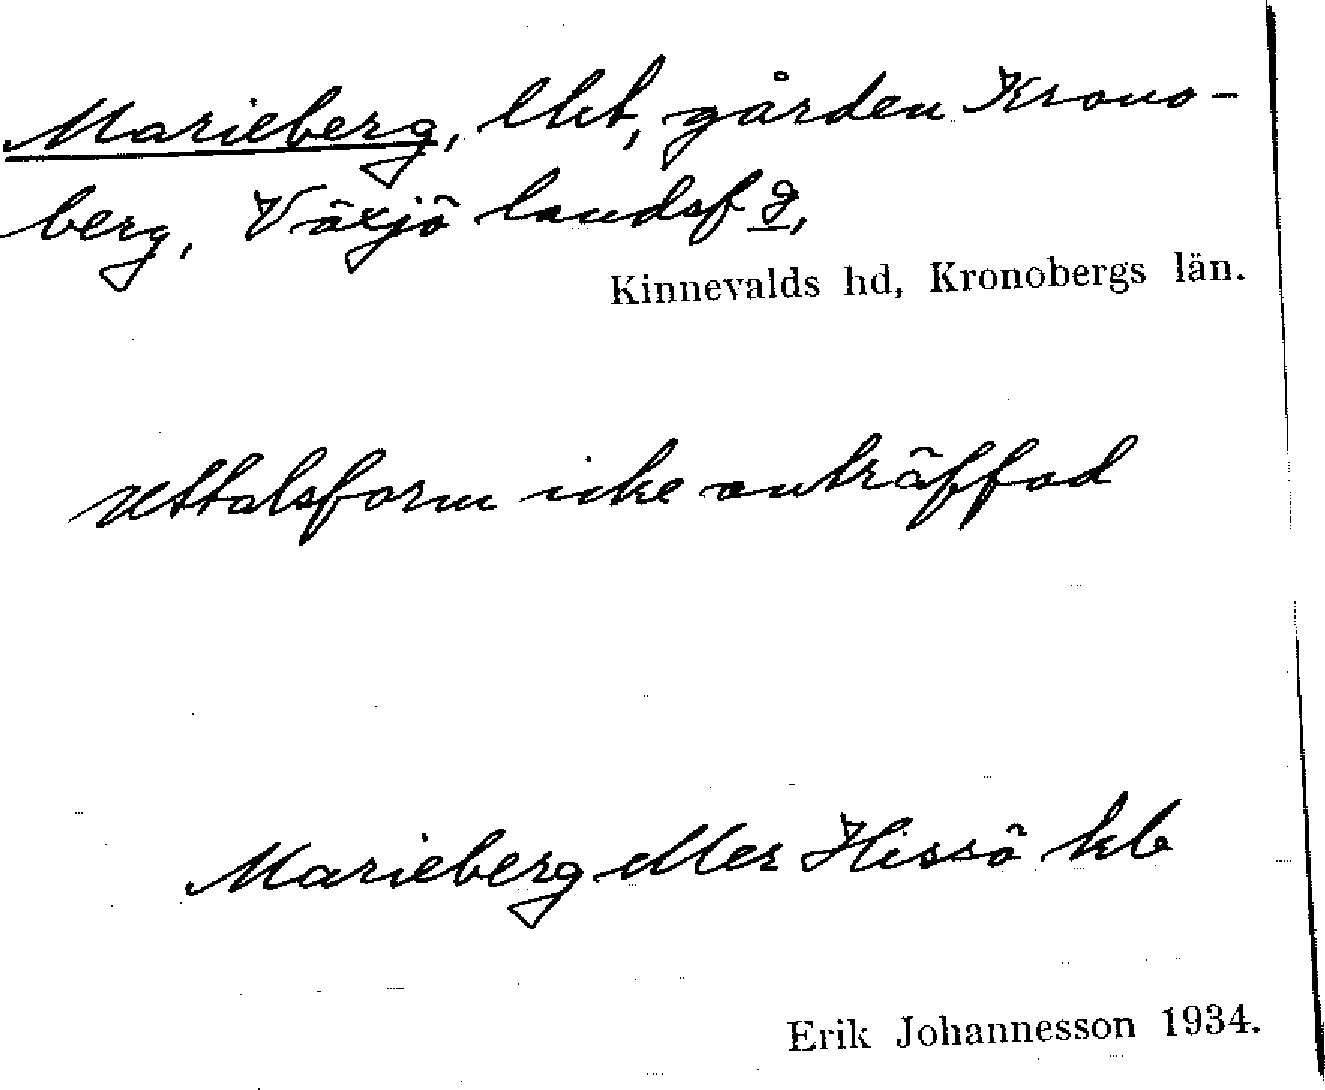 Marieberg, lht, gården Krono-
berg, Växjö landsf
Kinnevalds hd, Kronobergs län.
Uttalsform icke anträffad
Marieberg eller Hissö kb
Erik Johannesson 1934.